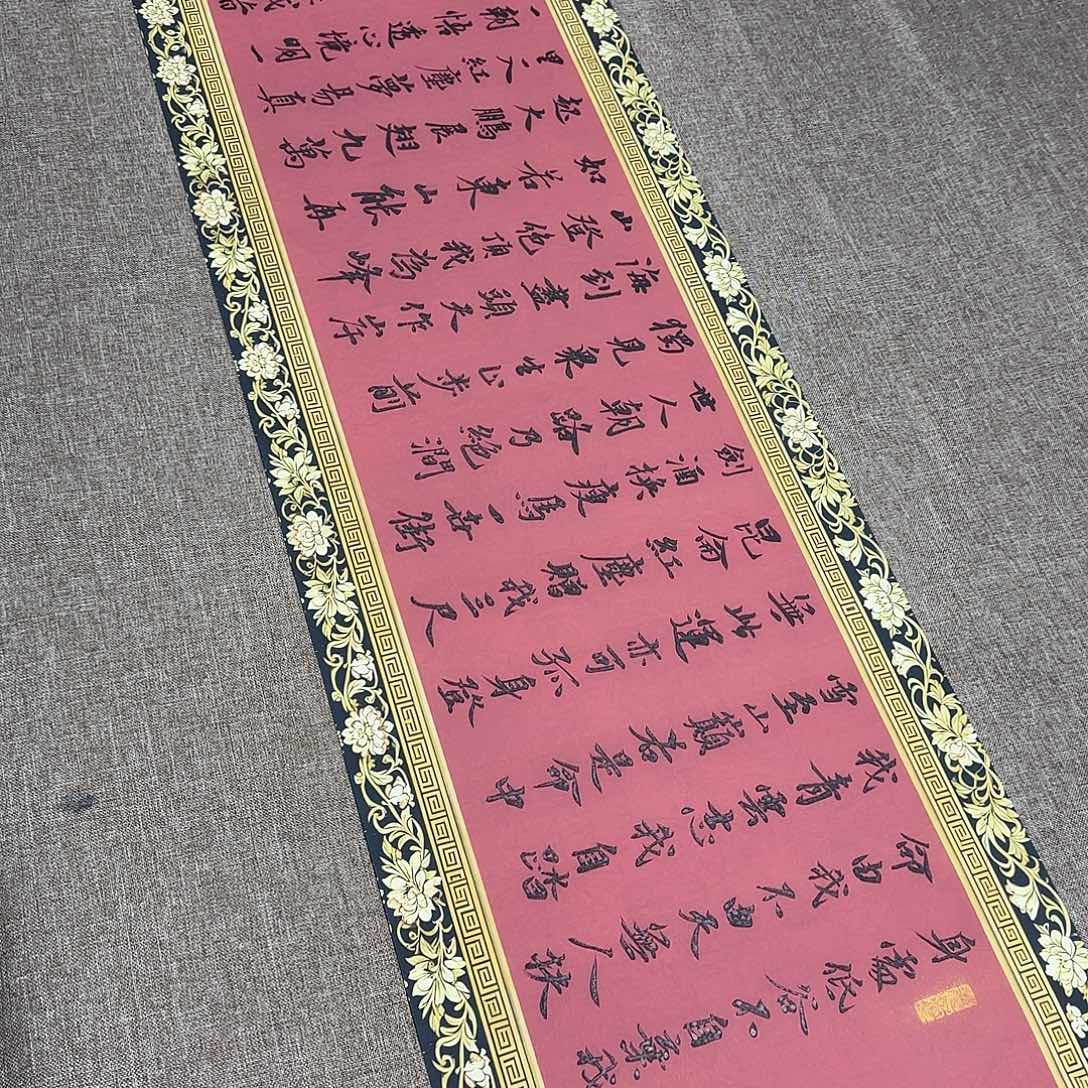 身處低谷不自棄我
命由我不由天無人扶
我青雲志我自踏
雪至山巔若是命中
無此運亦可孤身登
昆侖紅塵贈我三尺
劍酒換瘦馬一世街
世人朝路乃絕澗
獨見眾生止步前
海到盡頭天作岸
山登絕頂我為峰
如若東山能再
起大鵬展翅九萬
里一入紅塵夢易真
一朝悟透心境明一